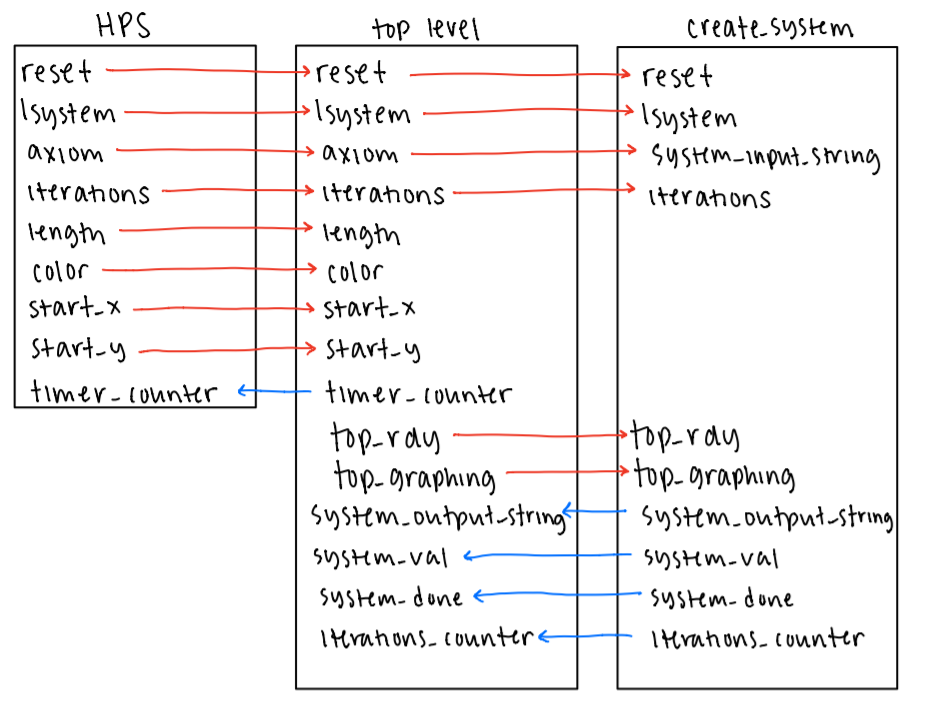 HPS
reset
lsystem
axiom
iterations
length
color
start_x
start_y
timer_counter
top level
reset
lsystem
axiom
iterations
length
color
start_x
start_y
timer_counter
top_rdy
top_graphing
system_output_string
system_val
system_done
iterations_counter
create_system
reset
lsystem
system_input_string
iterations
top_rdy
top_graphing
system_output_string
system_val
system_done
iterations_counter